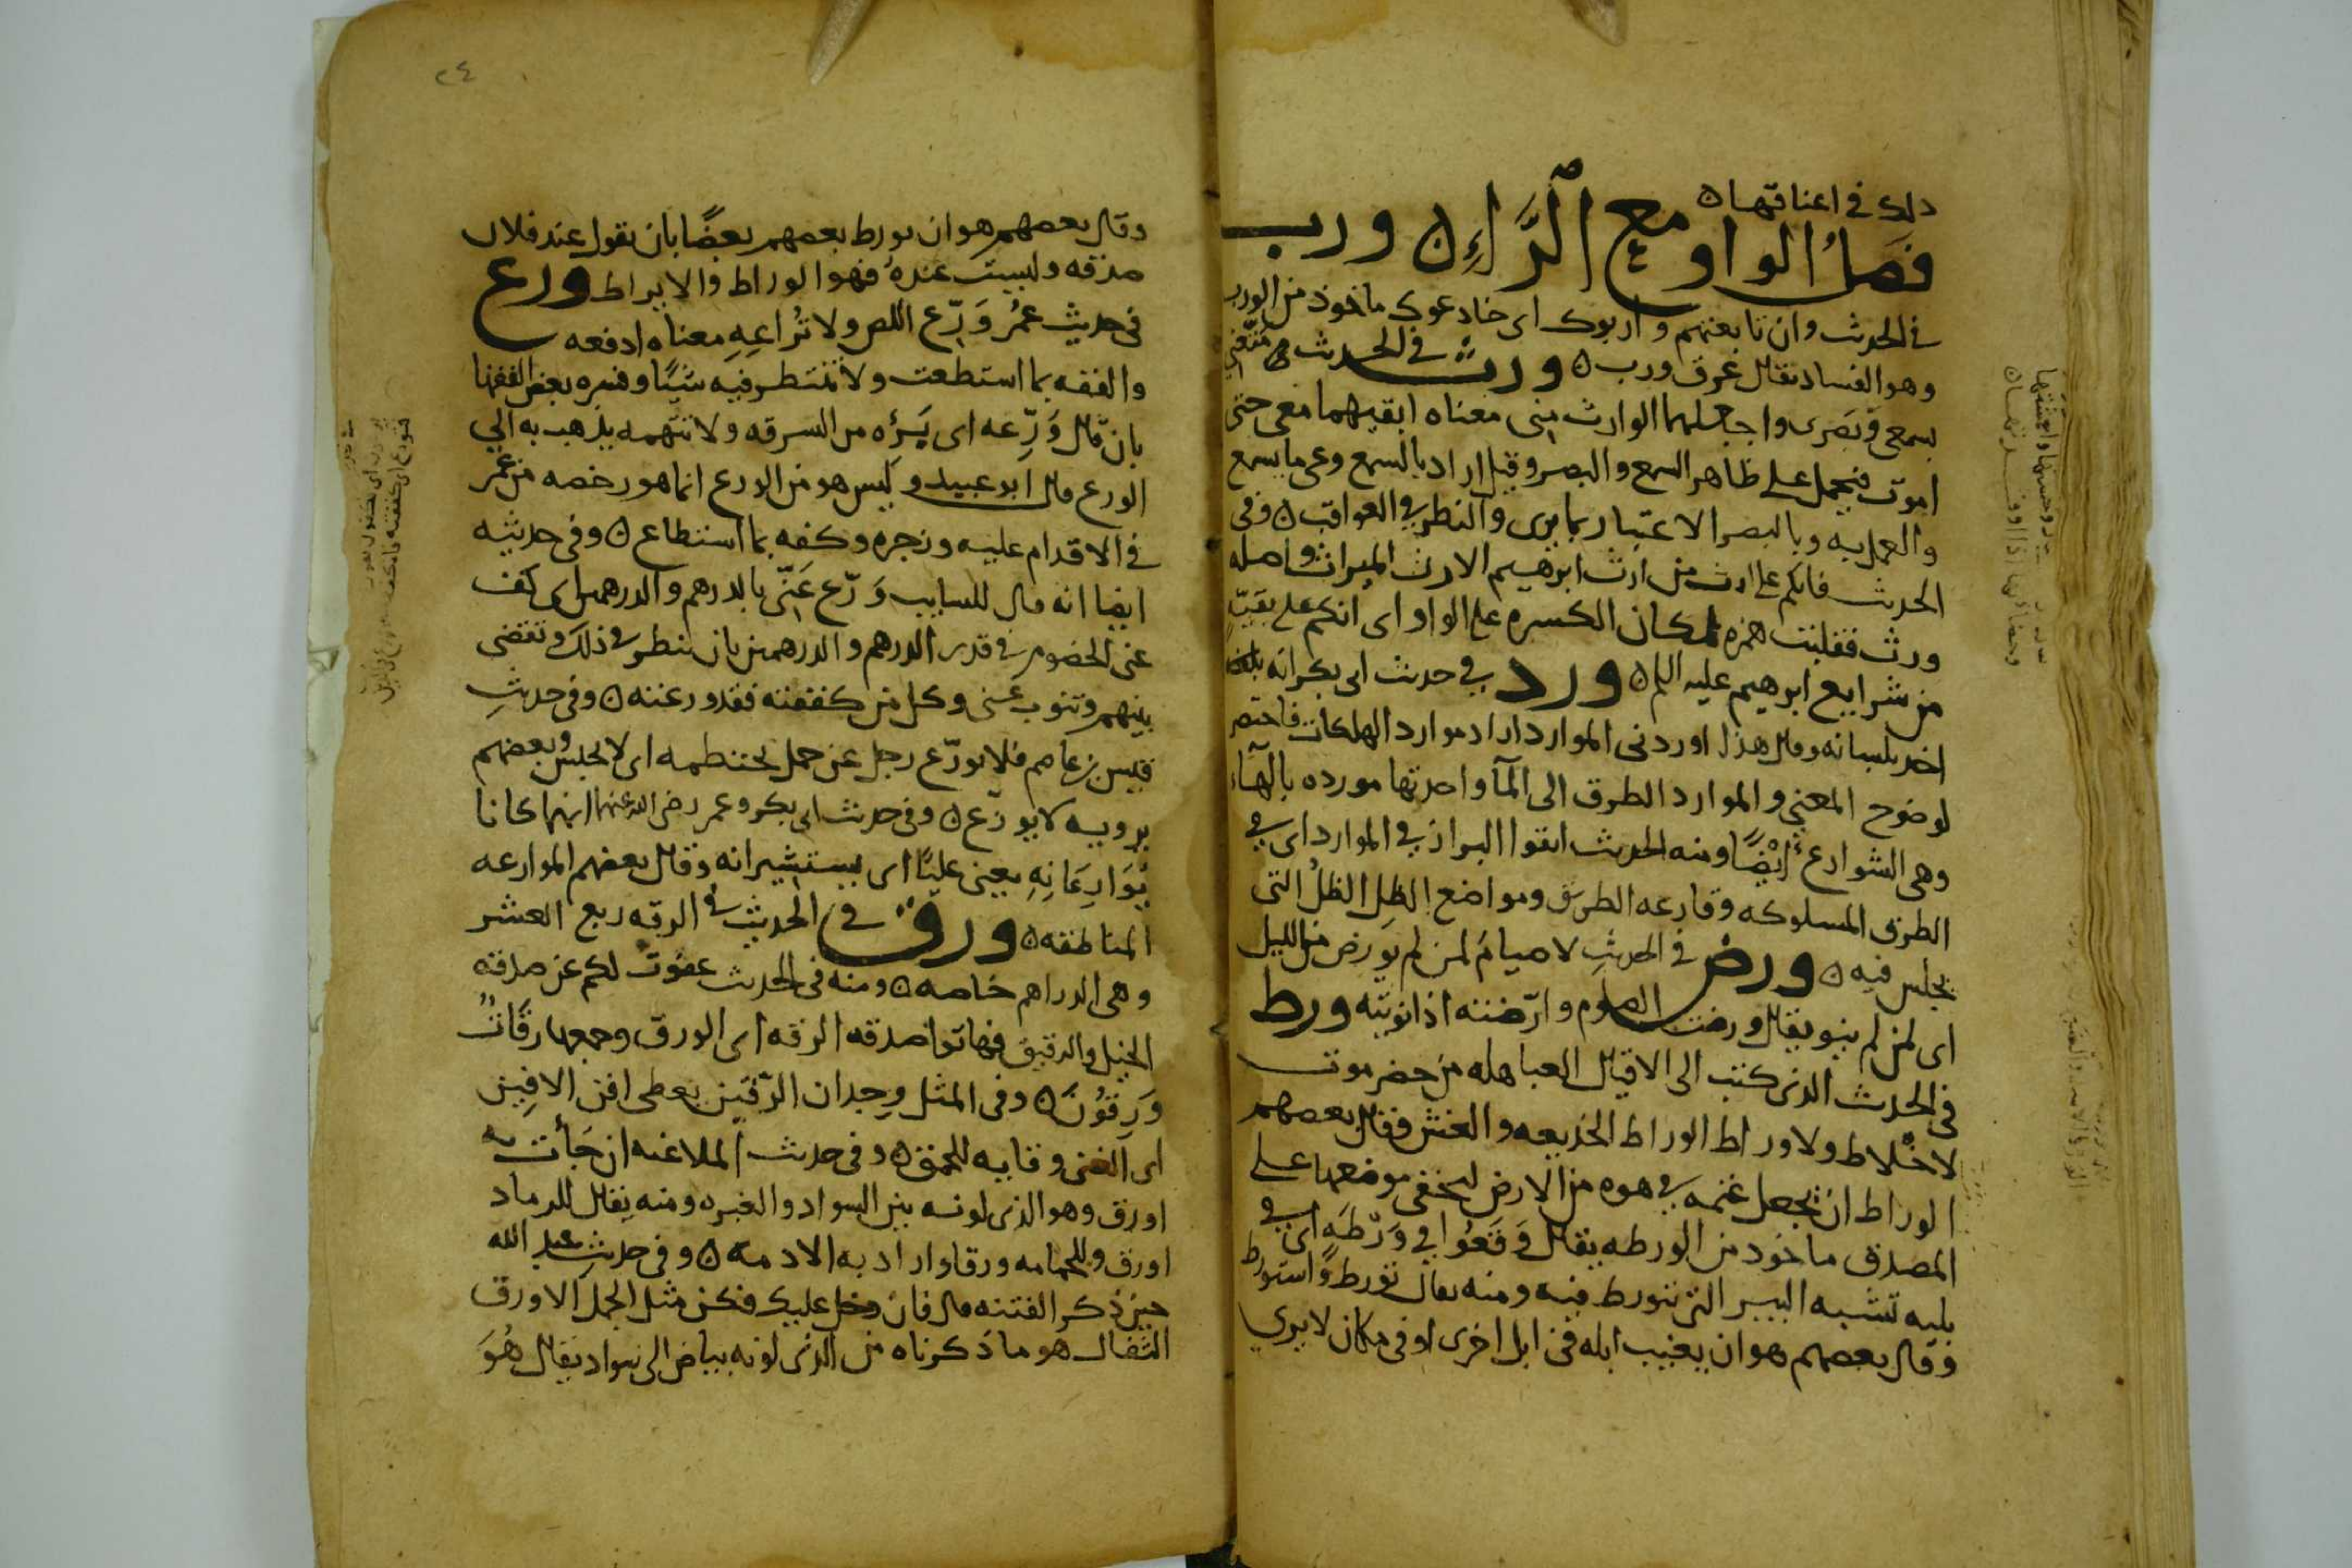 ذلك في اعناقها ه
فصل الواو مع الراء ه ورب
في الحديث وان تابعتهم واربوك اى خادعوك ماخوذ من الورب
وهو الفساد يقال عرق ورب ه ورث في الحديث متعني
بسمعى وبصرى واجعلهما الوارث منى معناه ابقيهما معى حتى
اموت فيحمل على ظاهر السمع والبصر وقيل اراد بالسمع وعى ما يسمع
والعمل به وبالبصر الاعتبار بما يرى والنظر في العواقب ه وفى
الحديث فانكم على ارث من ارث ابرهيم الارث الميراث واصله
ورث فقلبت همزه لمكان الكسره على الواو اى انكم على بقيه
من شرايع ابرهيم عليه السلم ه ورد في حديث ابى بكر انه
اخذ بلسانه وقال هذا اوردنى الموارد اراد موارد الهلكات فاختصر
لوضوح المعنى والموارد الطرق الى الماء واحدتها مورده بالهاء
وهى الشوارع ايضًا ومنه الحديث اتقوا البراز في الموارد اى في
الطرق المسلوكه وقارعه الطريق ومواضع الظل الظل التى
يجلس فيه ه ورض في الحديث لا صيام لمن لم يورض من الليل
اى لمن لم ينو يقال ورضت الصوم وارضته اذا نويته ورط
في الحديث الذى كتب الى الاقيال العباهله من حضرموت
لا خلاط ولا وراط الوراط الخديعه والغش فقال بعضهم
الوراط ان يجعل غنمه في هوه من الارض ليخفى موضعها على
المصدق ماخوذ من الورطه يقال وقعوا في ورطه اى في
بليه تشبه البير التى تتورط فيه ومنه يقال تورط واستورط
وقال بعضهم هو ان يغيب ابله في ابل اخرى او في مكان لا يرى
٢٤
وقال بعضهم هو ان يورط بعضهم بعضًا بان يقول عند فلان
صدقه وليست عنده فهو الوراط والايراط ورع
في حديث عمر ورّع اللص ولا تُراعِهِ معناه ادفعه
والففه بما استطعت ولا تنتظر فيه شيئًا وفسره بعض الفقها
بان قال ورِّعه اى بَرِّه من السرقه ولا تتهمه يذهب به الى
الورع قال ابو عبيد وليس هو من الورع انما هو رخصه من عمر
في الاقدام عليه وزجره وكفه بما استطاع ه وفى حديثه
ايضا انه قال للسايب ورّع عنّى بالدرهم والدرهمين اى كف
عنى الخصوم في قدر الدرهم والدرهمين بان تنظر في ذلك وتقضى
بينهم وتنوب عنى وكل من كففته فقد ورعته ه وفى حديث
قيس بن عاصم فلا يورّع رجل عن جمل يختطمه اى لا يحبس وبعضهم
يرويه لا يوزّع ه وفى حديث ابى بكر وعمر رضى الله عنهما انهما كانا
يُوَارِعَانِهِ يعنى عليًا اى يستشيرانه وقال بعضهم الموارعه
المناطقه ه ورق في الحديث في الرقه ربع العشر
وهى الدراهم خاصه ه ومنه في الحديث عفوت لكم عن صدقه
الخيل والرقيق فهاتوا صدقه الرقه اى الورق وجمعها رقات
ورِقُونَ ه وفى المثل وجدان الرّقين يعطى افن الافين
اى الغنى وقايه للحمق ه وفى حديث الملاعنه ان جأت به
اورق وهو الذى لونه بين السواد والغبره ومنه يقال للرماد
اورق وللحمامه ورقا واراد به الادمه ه وفى حديث عبد الله
حين ذكر الفتنه قال فان دخل عليك فكن مثل الجمل الاورق
الثفال هو ما ذكرناه من الذى لونه بياض الى سواد يقال هُوَ